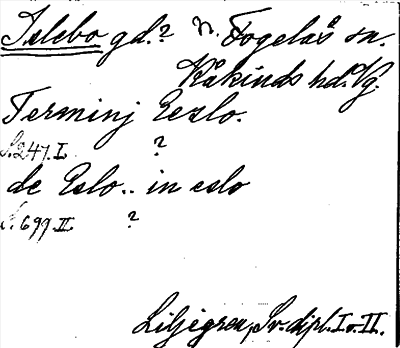 Islebo gd.? n. Fogelås sn.
Kåkinds hd. Vg.
Terminj Eeslo.
S. 247. I. ?
de Eslo.. in eslo
S. 699. II. ?
Liljegren, Sv. dipl. I o. II.